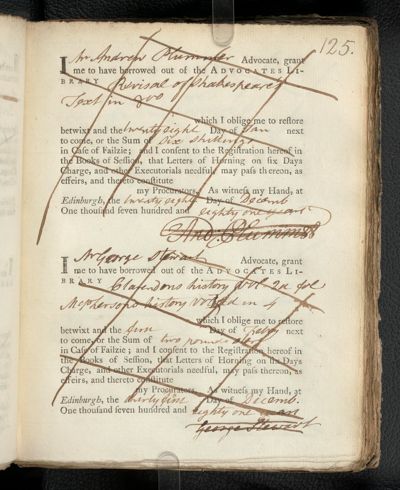 125.
I Mr Andrew Plummer Advocate, grant
me to have borrowed out of the ADVOCATES LI-
BRARY Revisal of Shakespear's
Text in 8vo
which I oblige me to restore
betwixt and the twenty eight Day of Jan next
to come, or the Sum of Six shillings
in Case of Failzie; and I consent to the Registration hereof in
the Books of Session, that Letters of Horning on six Days
Charge, and other Executorials needful, may pass thereon, as
effeirs, and thereto constitute
my Procurators. As witness my Hand, at
Edinburgh, the twenty eight Day of Decemb
One thousand seven hundred and eighty one years
And: Plummer
I Mr George Stewart Advocate, grant
me to have borrowed out of the ADVOCATES LI-
BRARY Clarendons history Vol 2d fol
McPhersons history Vol 2d in 4
which I oblige me to restore
betwixt and the first Day of Febry next
to come, or the Sum of two pounds ster
in Case of Failzie; and I consent to the Registration hereof in
the Books of Session, that Letters of Horning on six Days
Charge, and other Executorials needful, may pass thereon, as
effeirs, and thereto constitute
my Procurators. As witness my Hand, at
Edinburgh, the thirty first Day of Decemb.
One thousand seven hundred and eighty one
George Stewart